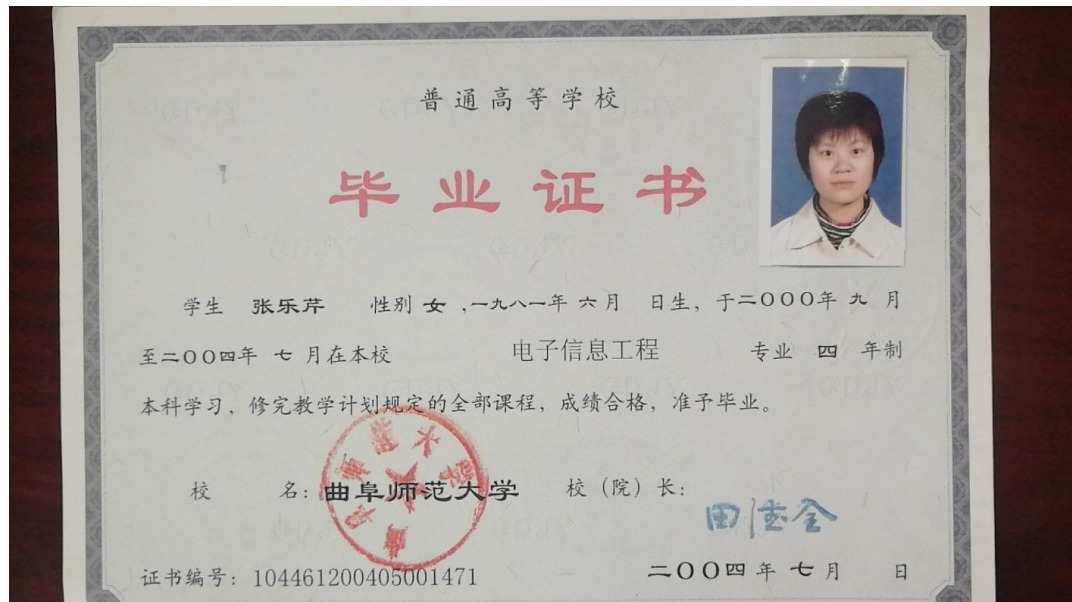 普通高等学校
毕业证书
学生 张乐芹 性别 女 ,一九八一年 六 月 日生, 于二〇〇〇年 九 月
至二〇〇四年 七 月在本校 电子信息工程 专业 四 年制
本科学习, 修完教学计划规定的全部课程, 成绩合格, 准予毕业。
校 名: 曲阜师范大学 校（院）长: 田德全
曲阜师范大学
证书编号: 104461200405001471 二〇〇四 年 七 月 日